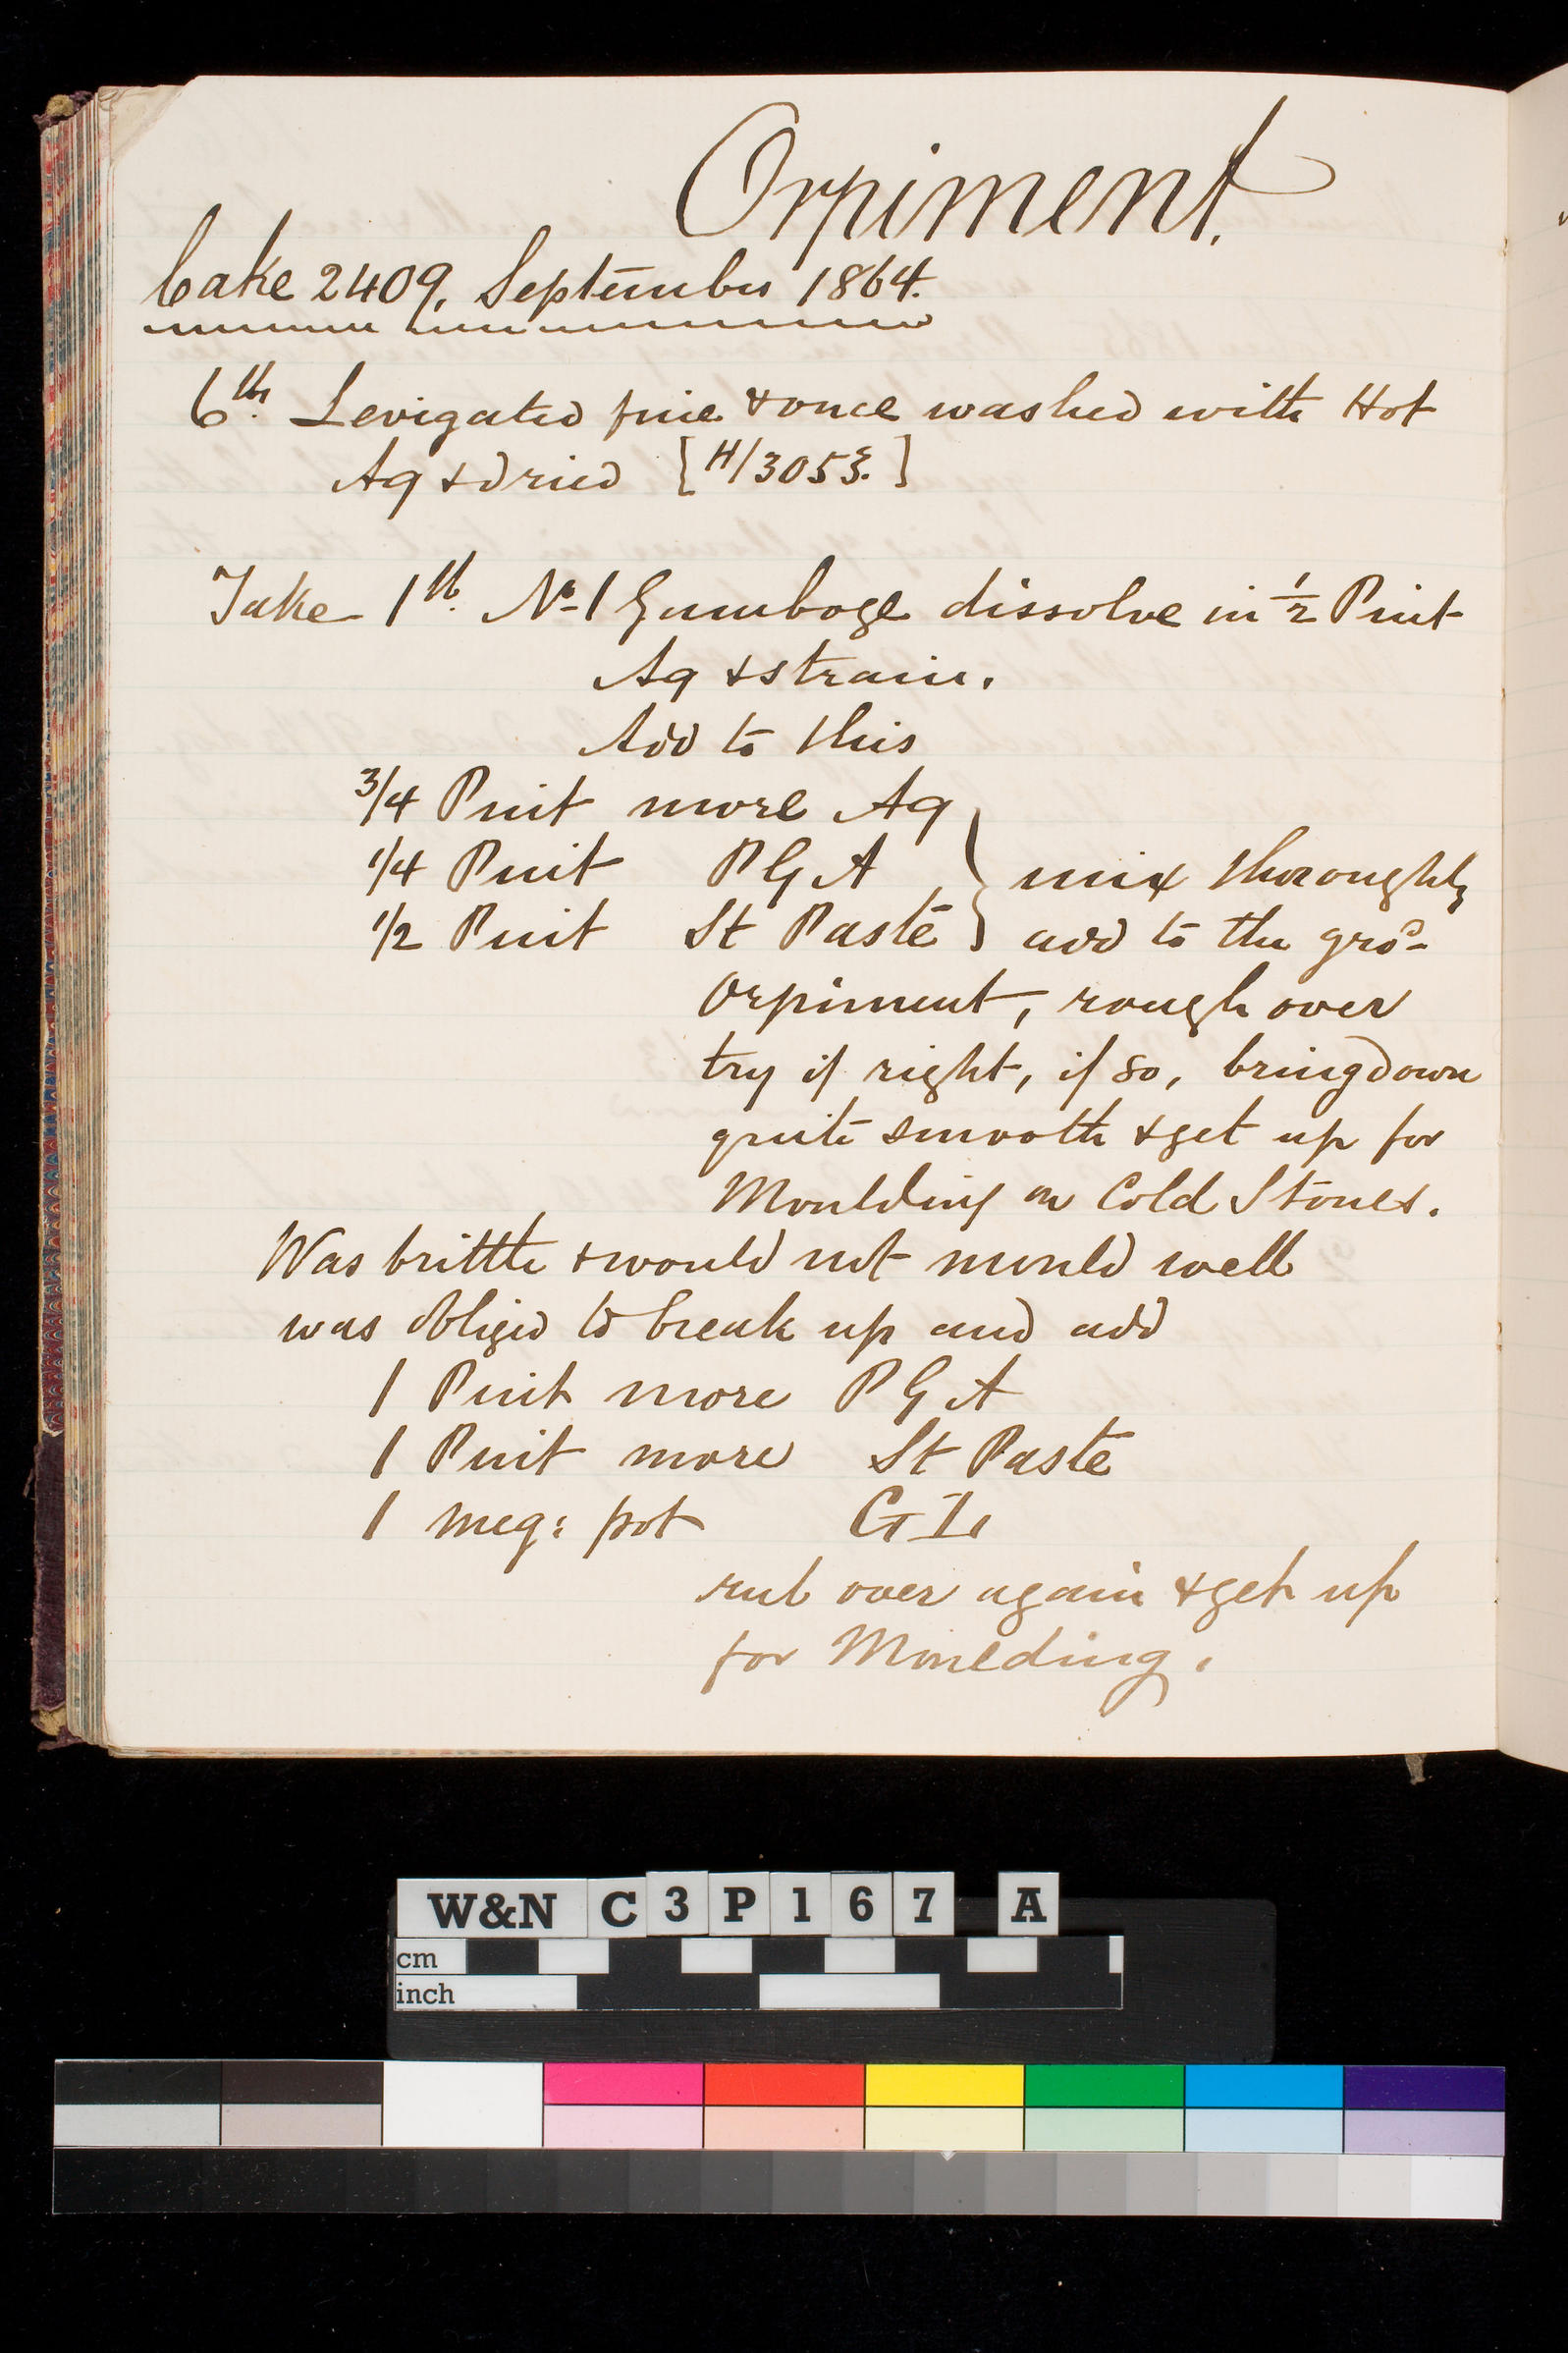 Orpiment.
Cake 2409. September 1864.
6 lb. Levigated fine & once washed with Hot
Aq & dried [H/305℥.]
Take 1 lb. No 1 Gamboge dissolve in ½ Pint
Aq & strain.
Add to this
3/4 Pint more Aq
1/4 Pint P G A } mix thoroughly
1/2 Pint St Paste } add to the gro-d
Orpiment, rough over
try if right, if so, bring down
quite smooth & get up for
Moulding on Cold Stones.
Was brittle & would not mould well
was obliged to break up and add
1 Pint more P G A
1 Pint more St Paste
1 meg: pot
rub over again & get up
for Moulding.
W&N C3P167 A
cm
inch